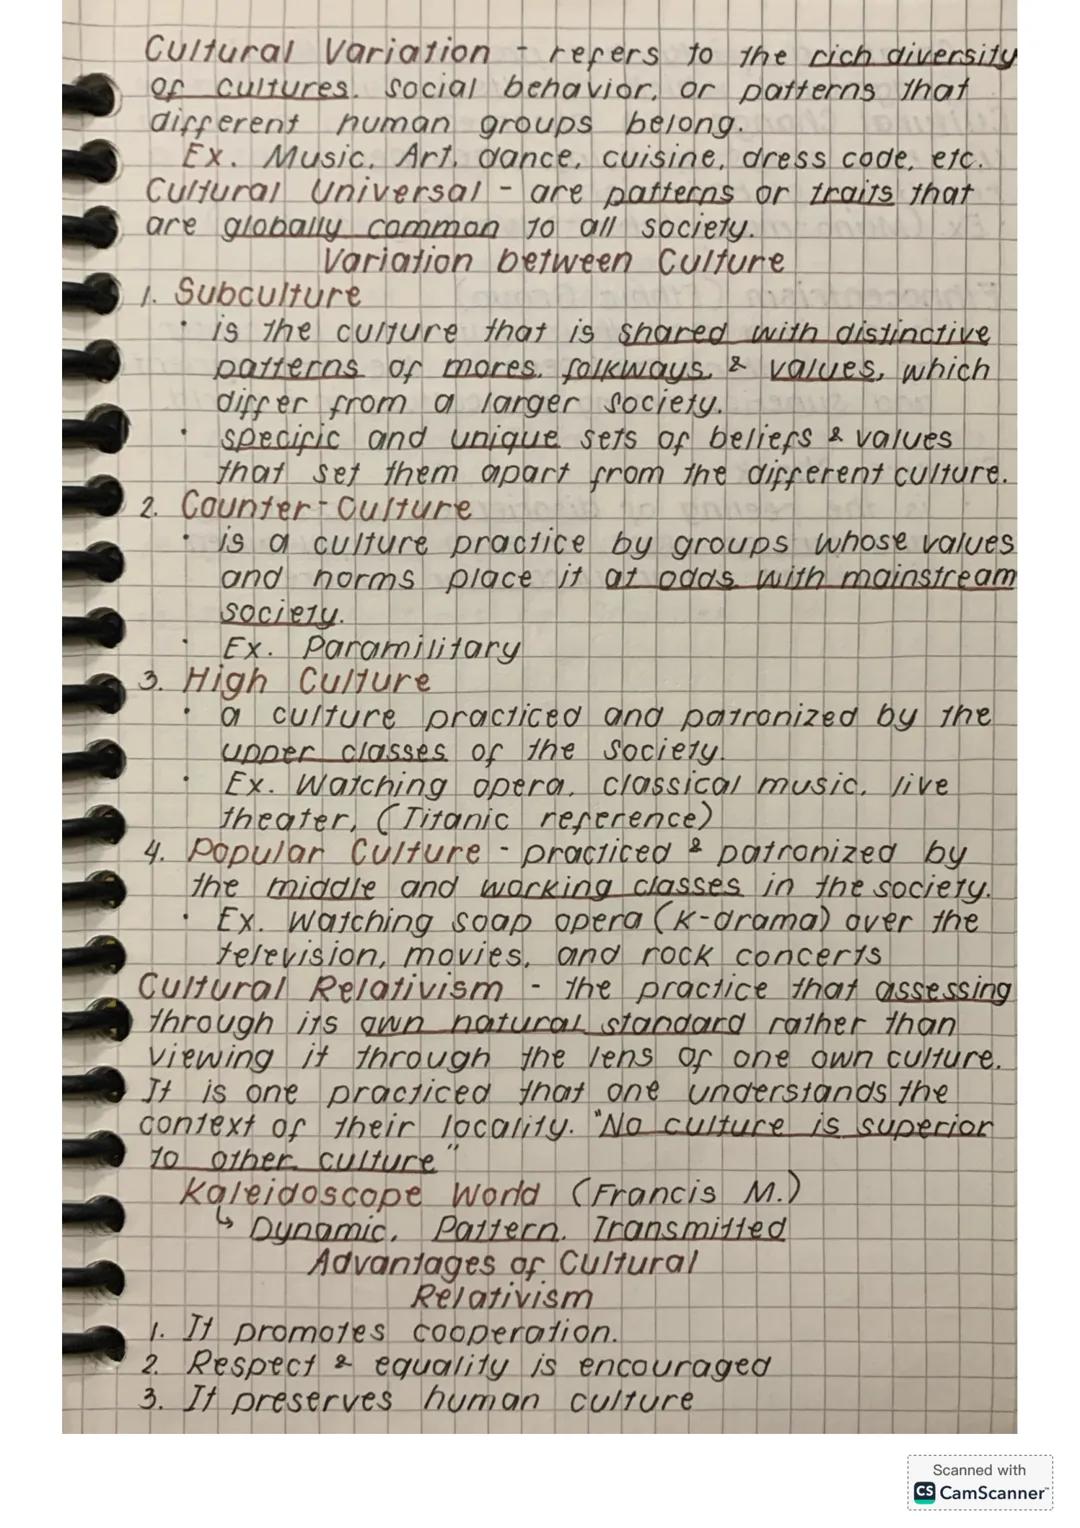 Cultural Variation - refers to the rich diversity
of cultures. social behavior, or patterns that
different human groups belong.
Ex. Music, Art, dance, cuisine, dress code, etc.
Cultural Universal - are patterns or traits that
are globally common to all society.
Variation between Culture
1. Subculture
• is the culture that is shared with distinctive
patterns of mores, folkways, & values, which
differ from a larger society.
• specific and unique sets of beliefs & values
that set them apart from the different culture.
2. Counter-Culture
• is a culture practice by groups whose values
and norms place it at odds with mainstream
society.
• Ex. Paramilitary
3. High Culture
• a culture practiced and patronized by the
upper classes of the society.
• Ex. Watching opera, classical music, live
theater, (Titanic reference)
4. Popular Culture - practiced & patronized by
the middle and working classes in the society.
• Ex. Watching soap opera (K-drama) over the
television, movies, and rock concerts
Cultural Relativism - the practice that assessing
through its own natural standard rather than
viewing it through the lens of one own culture.
It is one practiced that one understands the
context of their locality. "No culture is superior
to other culture"
Kaleidoscope World (Francis M.)
↳ Dynamic, Pattern, Transmitted
Advantages of Cultural
Relativism
1. It promotes cooperation.
2. Respect & equality is encouraged
3. It preserves human culture
Scanned with
CS CamScanner™